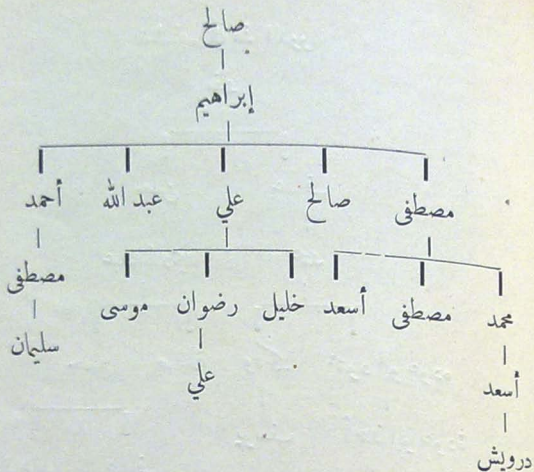 صالح
إبراهيم
مصطفى صالح علي عبد الله أحمد
محمد مصطفى أسعد خليل رضوان موسى مصطفى
أسعد علي سليمان
درويش